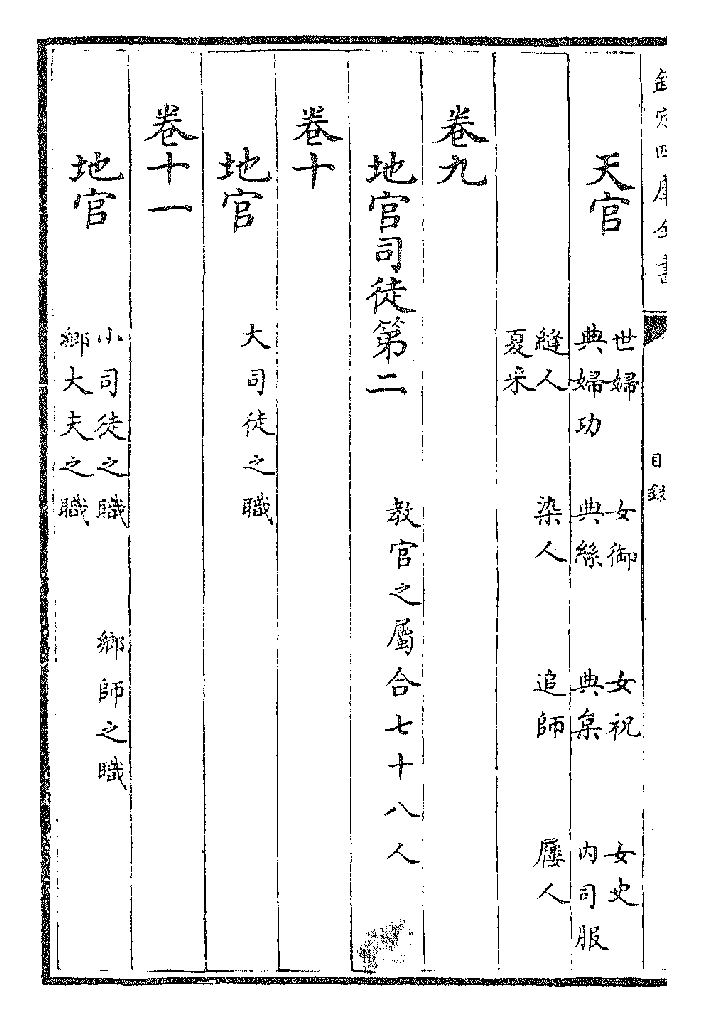 欽定四庫全書
目録
天官
世婦 女御 女祝 女史
典婦功 典絲 典枲 内司服
縫人 染人 追師 屨人
夏采
卷九
地官司徒第二 教官之屬合七十八人
卷十
地官 大司徒之職
卷十一
地官
小司徒之職 鄉師之職
鄉大夫之職